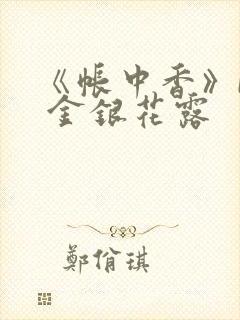 《帳中香》
金銀花露
鄭偺琪